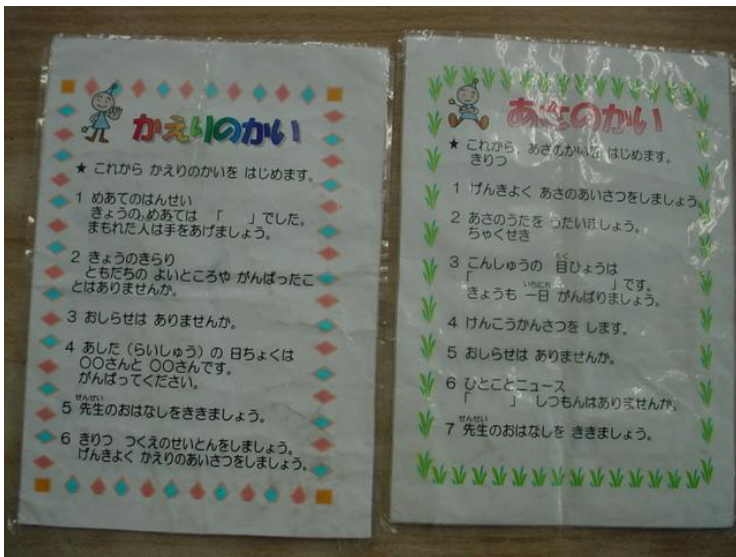 かえりのかい
★ これから かえりのかいを はじめます。
1 めあてのはんせい
きょうの めあては 「　　」でした。
まもれた人は手をあげましょう。
2 きょうのきらり
ともだちの よいところや がんばったこ
とはありませんか。
3 おしらせは ありませんか。
4 あした(らいしゅう)の 日ちょくは
〇〇さんと 〇〇さんです。
がんばってください。
せんせい
5 先生のおはなしをききましょう。
6 きりつ つくえのせいとんをしましょう。
げんきよく かえりのあいさつをしましょう。
あさのかい
★ これから あさのかいを はじめます。
きりつ
1 げんきよく あさのあいさつをしましょう。
2 あさのうたを うたいましょう。
ちゃくせき
もく
3 こんしゅうの 目ひょうは
「　　　　　　　　」です。
いちにち
きょうも 一日 がんばりましょう。
4 けんこうかんさつを します。
5 おしらせは ありませんか。
6 ひとことニュース
「　　　」 しつもんはありませんか。
せんせい
7 先生のおはなしを ききましょう。